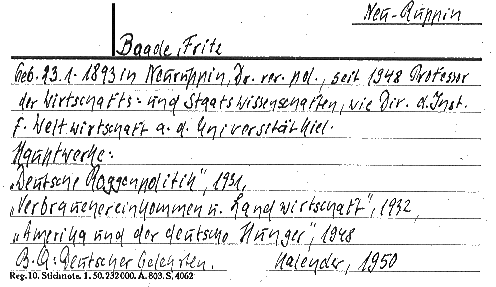 Neu-Ruppin
Baade, Fritz
Geb. 23.1.1893 in Neuruppin, Dr. rer. pol., seit 1948 Professor
der Wirtschafts- und Staatswissenschaften, wie Dir. d. Inst.
f. Weltwirtschaft a. d. Universität Kiel.
Hauptwerke:
„Deutsche Roggenpolitik", 1931,
„Verbrauchereinkommen u. Landwirtschaft", 1932,
„Amerika und der deutsche Hunger", 1948
B. Q.: Deutscher Gelehrten. Kalender, 1950
Reg. 10. Stichnote. 1. 50. 232000. A. 803. S. 4062